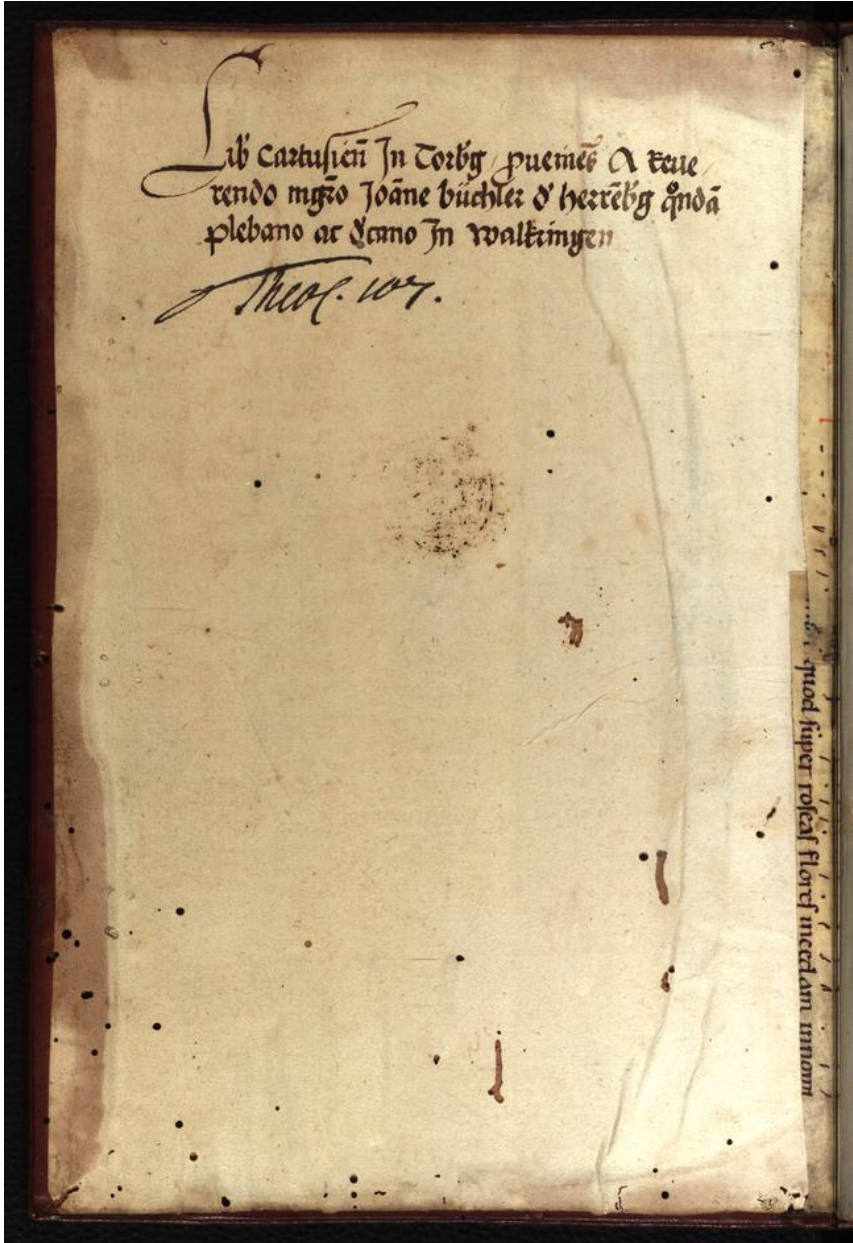 Lib' Cartusień In Torb'g / ꝓueniēs A Reue/
rendo mgr̄o Joāne büchler d' herrēb'g qͦndā
plebano ac d'cano In walkringen
Theol. 107.
quod super roseas flores incedam